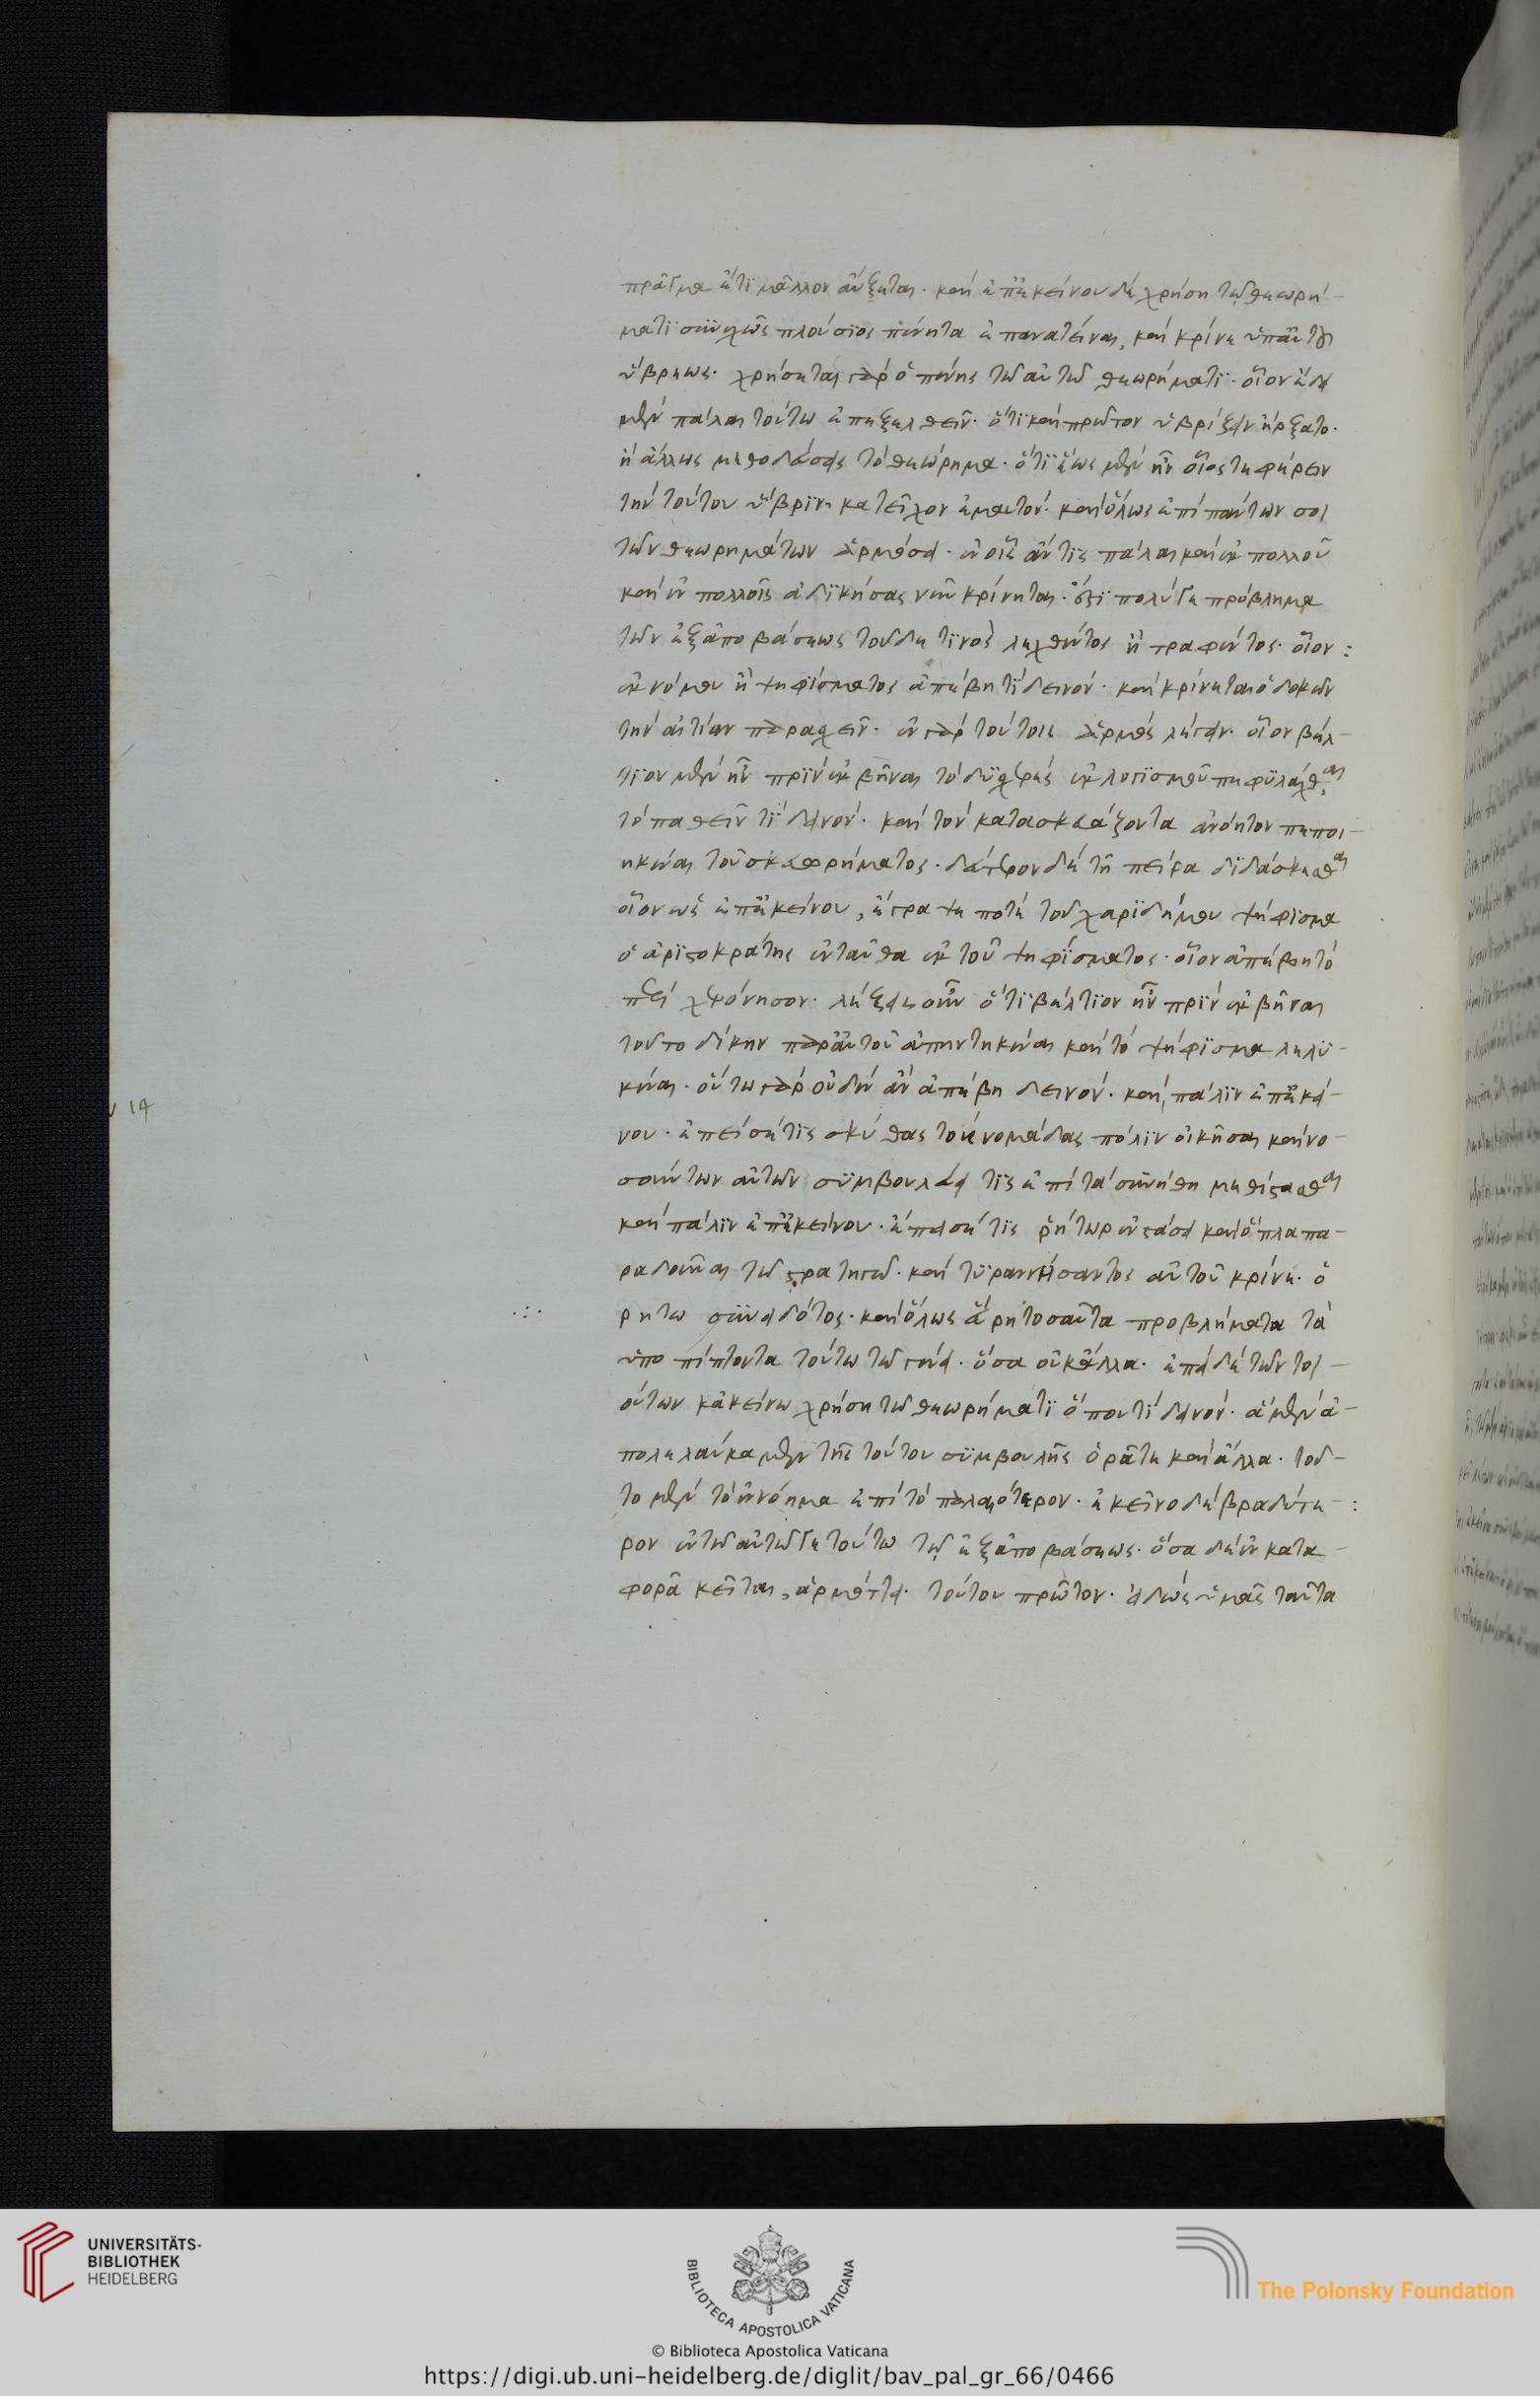 πρᾶγμα ἔτι μᾶλλον αὔξεται. καὶ ἐπ' ἐκείνου δὲ χρήση τῷ θεωρή-
ματι συνεχῶς πλούσιος πένητα ἐπανατείνας, καὶ κρίνει ὑπ' αὐτοῦ
ὕβρεως. χρήσεται γὰρ ὁ πένης τῷ αὐτῷ θεωρήματι. οἷον ἔδει
μὲν πάλαι τούτω ἐπεξελθεῖν. ὅτι καὶ πρῶτον ὑβρίζειν ἤρξατο.
ἢ ἄλλως μεθοδεύσεις τὸ θεώρημα. ὅτι ἕως μὲν ἦν οἷός τε φέρειν
τὴν τούτου ὕβριν κατεῖχον ἐμαυτόν. καὶ ὅλως ἐπὶ πάντων σοι
τῶν θεωρημάτων ἁρμόσει. ἐν οἷς ἄν τις πάλαι καὶ ἐκ πολλοῦ
καὶ ἐν πολλοῖς ἀδικήσας νῦν κρίνηται. ἔστι πολύ τι πρόβλημα
τῶν ἐξ ἀποβάσεως τοῦδέ τινος λεχθέντος ἢ γραφέντος. οἷον :
ἐκ νόμου ἢ ψηφίσματος ἀπέβη τὶ δεινόν. καὶ κρίνεται ὁ δοκῶν
τὴν αἰτίαν παρασχεῖν. ἐν γὰρ τούτοις ἁρμόσει λέγειν. οἷον βέλ-
τιον μὲν ἦν πρὶν ἐκβῆναι τὸ δυσχερὲς ἐκ λογισμοῦ πεφυλάχθαι
τὸ παθεῖν τὶ δεινόν. καὶ τὸν κατασκευάζοντα ἀνόητον πεποι-
ηκέναι τοῦ σκευωρήματος. δεύτερον δὲ τῇ πείρα διδάσκεσθαι
οἷον ὡς ἐπ' ἐκείνου, ἔγραψέ ποτε τοῦ χαριδήμου ψήφισμα
ὁ ἀριστοκράτης ἐνταῦθα ἐκ τοῦ ψηφίσματος. οἷον ἀπέβη τὸ
περὶ χερόνησον. λέξεις οὖν ὅτι βέλτιον ἦν πρὶν ἐκβῆναι
τοῦτο δίκην παρ' αὐτοῦ ἀπῃτηκέναι καὶ τὸ ψήφισμα λελυ-
κέναι. οὕτω γὰρ οὐδὲν ἂν ἀπέβη δεινόν. καὶ, πάλιν ἐπ' ἐκεί-
νου. ἔπεισέ τις σκύθας τοὺς νομάδας πόλιν οἰκῆσαι καὶ νο-
σούντων αὐτῶν συμβουλεύει τις ἐπὶ τὰ συνήθη μεθίστασθαι
καὶ πάλιν ἐπ' ἐκείνου. ἔπεισέ τις ῥήτωρ ἐν στάσει καὶ ὅπλα πα-
ραδοῦναι τῷ στρατηγῷ. καὶ τυραννήσαντος αὐτοῦ κρίνει. ὁ
ρητω συνειδότος. καὶ ὅλως εὕρητο ταῦτα προβλήματα τὰ
ὑποπίπτοντα τούτω τῷ γένει. ὅσα οὐκ ἄλλα. ἐπεὶ δὲ τῶν τοι-
ούτων κἀκείνω χρήση τῷ θεωρήματι ὅπου τί δεινόν. ἃ μὲν ἀ-
πολελαύκαμεν τῆς τούτου συμβουλῆς ὁρᾶτε καὶ ἄλλα. τοῦ-
το μὲν τὸ ἐννόημα ἐπὶ τὸ παλαιότερον. ἐκεῖνο δὲ βραδύτε- :
ρον ἐν τῷ αὐτῷ γε τούτω τῷ ἐξ ἀποβάσεως. ὅσα δὲ ἐν κατα-
φορᾷ κεῖται, ἁρμόττει. τούτου πρῶτον. εἰδὼς ὑμᾶς ταῦτα
v 14
UNIVERSITÄTS-
BIBLIOTHEK
HEIDELBERG
BIBLIOTECA APOSTOLICA VATICANA
The Polonsky Foundation
© Biblioteca Apostolica Vaticana
https://digi.ub.uni-heidelberg.de/diglit/bav_pal_gr_66/0466